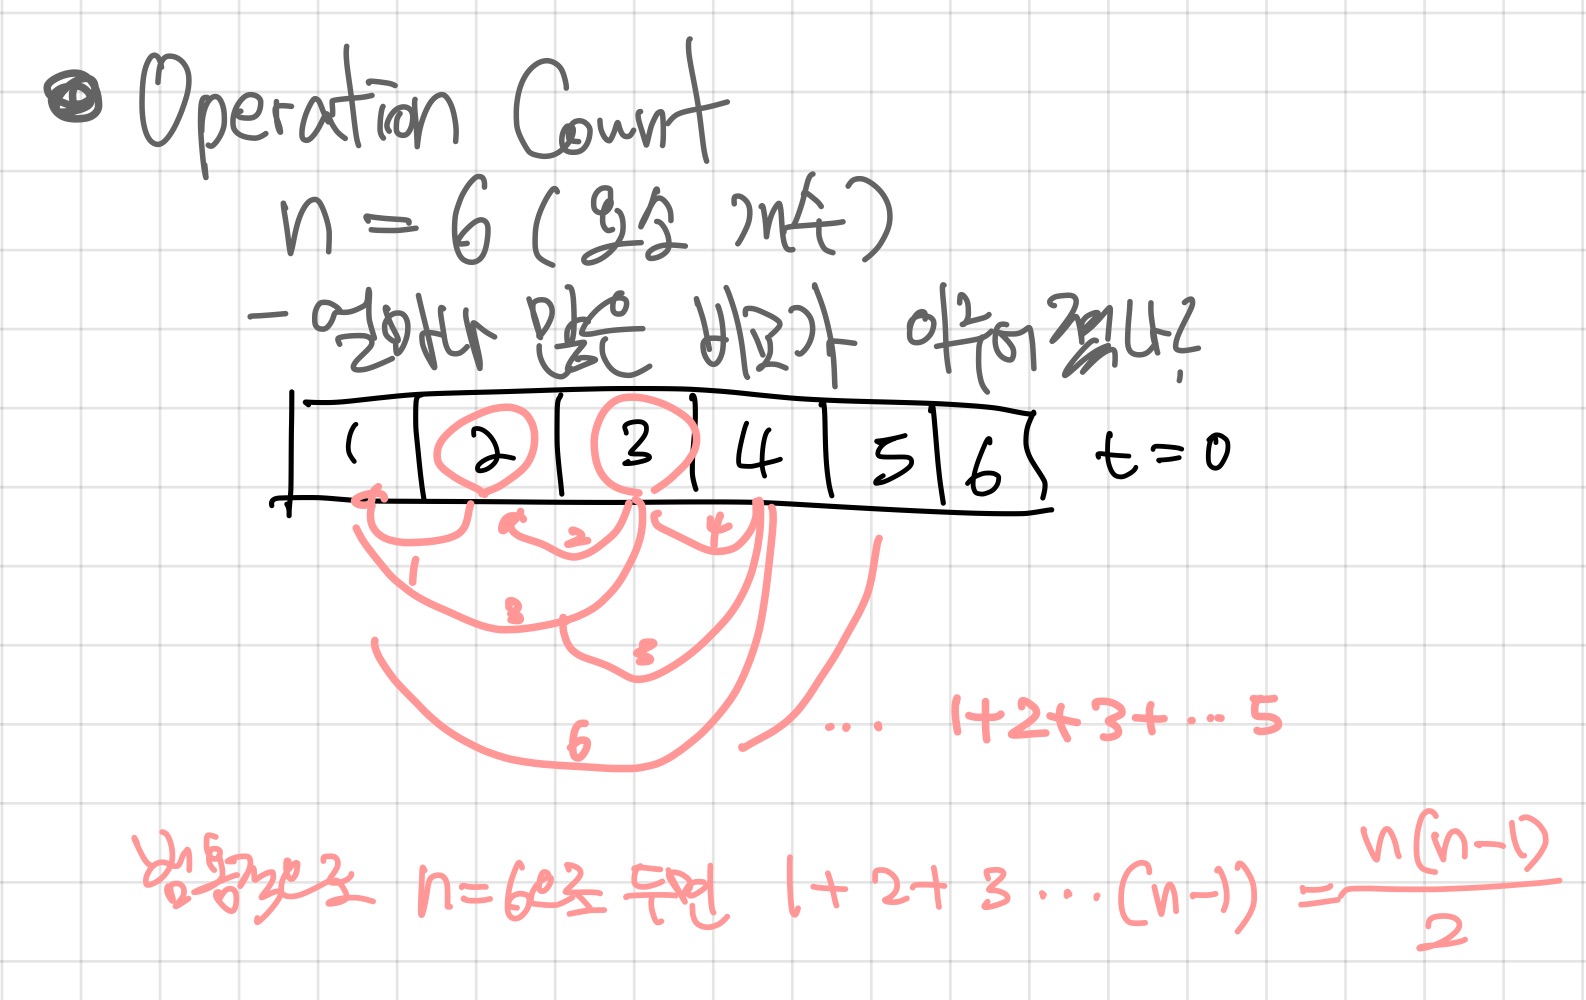 Operation Count
n = 6 (요소 개수)
- 얼마나 많은 비교가 이루어졌나?
1 2 3 4 5 6 t = 0
1 2 4
3
5
6
... 1+2+3+ ... 5
n=6으로 두면 1+2+3 ... (n-1) = n(n-1)/2